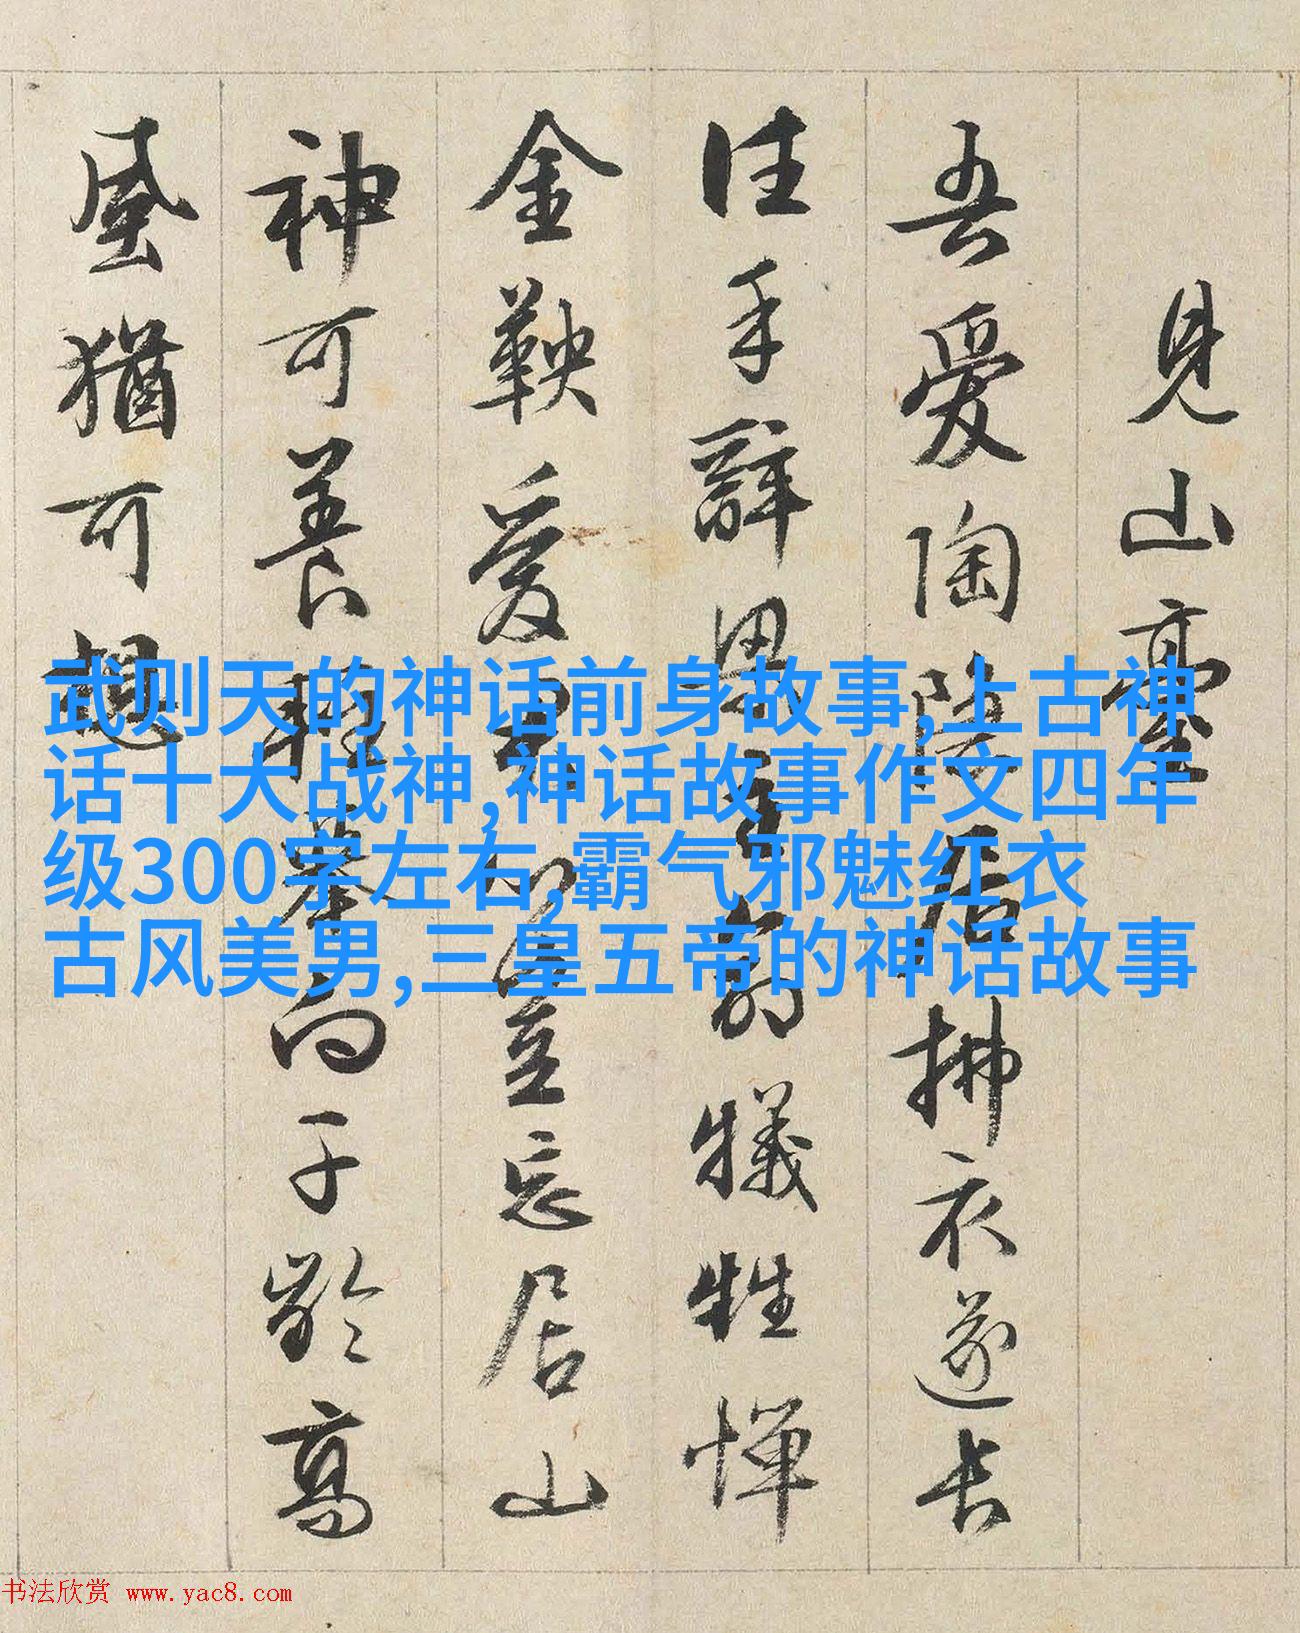 見山臺
吾愛陶隱居拂衣遂長
往手辭梁主命犧牲憚
金鞅愛君心豈忘居山
神可養輕舉向千齡高
風猶可想
武则天的神话前身故事,上古神
话十大战神,神话故事作文四年
级300字左右,霸气邪魅红衣
古风美男,三皇五帝的神话故事
书法欣赏 www.yac8.com